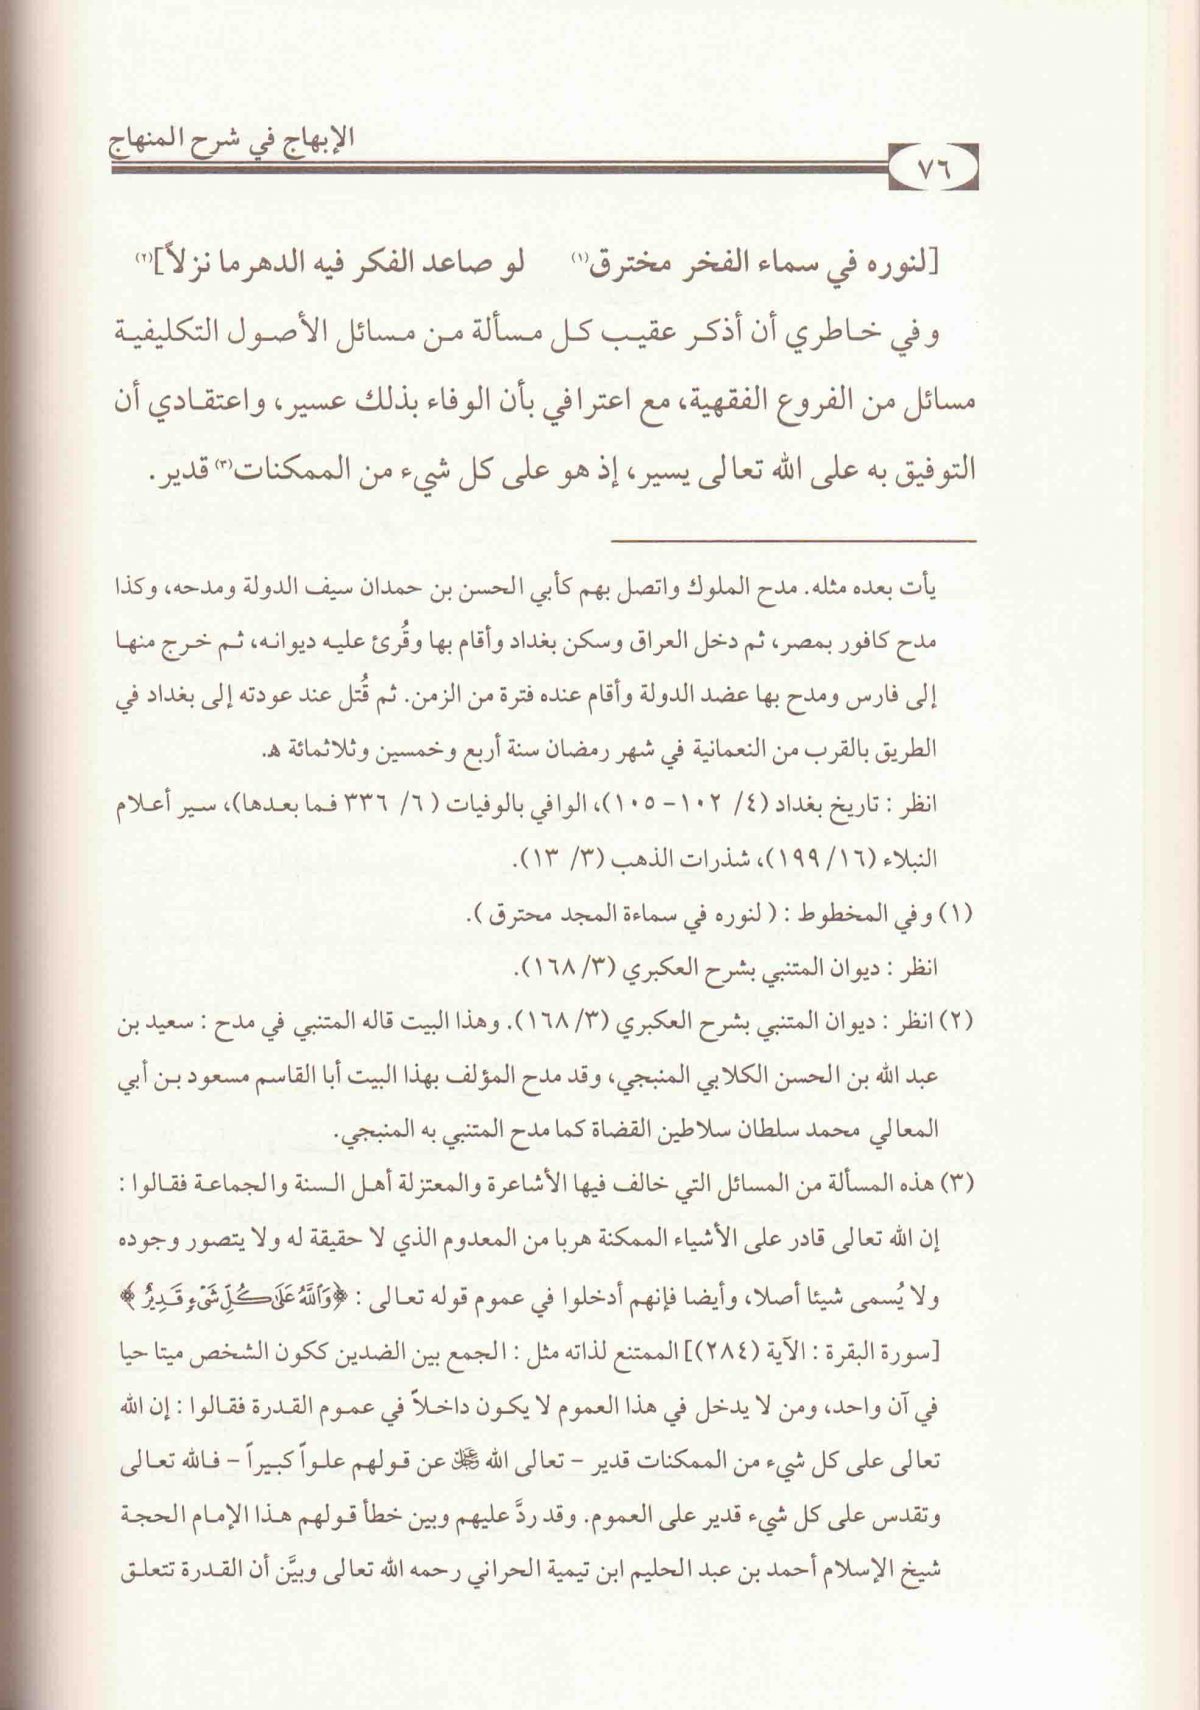 الإبهاج في شرح المنهاج
٧٦
[لنوره في سماء الفخر مخترق(١) لو صاعد الفكر فيه الدهر ما نزلاً](٢)
وفي خاطري أن أذكر عقيب كل مسألة من مسائل الأصول التكليفية
مسائل من الفروع الفقهية، مع اعترافي بأن الوفاء بذلك عسير، واعتقادي أن
التوفيق به على الله تعالى يسير، إذ هو على كل شيء من الممكنات(٣) قدير.
يأت بعده مثله. مدح الملوك واتصل بهم كأبي الحسن بن حمدان سيف الدولة ومدحه، وكذا
مدح كافور بمصر، ثم دخل العراق وسكن بغداد وأقام بها وقُرئ عليه ديوانه، ثم خرج منها
إلى فارس ومدح بها عضد الدولة وأقام عنده فترة من الزمن. ثم قُتل عند عودته إلى بغداد في
الطريق بالقرب من النعمانية في شهر رمضان سنة أربع وخمسين وثلاثمائة هـ.
انظر : تاريخ بغداد (٤/ ١٠٢ - ١٠٥)، الوافي بالوفيات (٦/ ٣٣٦ فما بعدها)، سير أعلام
النبلاء (١٦/ ١٩٩)، شذرات الذهب (٣/ ١٣).
(١) وفي المخطوط : ( لنوره في سماءة المجد محترق ).
انظر : ديوان المتنبي بشرح العكبري (٣/ ١٦٨).
(٢) انظر : ديوان المتنبي بشرح العكبري (٣/ ١٦٨). وهذا البيت قاله المتنبي في مدح : سعيد بن
عبد الله بن الحسن الكلابي المنبجي، وقد مدح المؤلف بهذا البيت أبا القاسم مسعود بن أبي
المعالي محمد سلطان سلاطين القضاة كما مدح المتنبي به المنبجي.
(٣) هذه المسألة من المسائل التي خالف فيها الأشاعرة والمعتزلة أهل السنة والجماعة فقالوا :
إن الله تعالى قادر على الأشياء الممكنة هربا من المعدوم الذي لا حقيقة له ولا يتصور وجوده
ولا يُسمى شيئا أصلا، وأيضا فإنهم أدخلوا في عموم قوله تعالى : ﴿وَٱللَّهُ عَلَىٰ كُلِّ شَىْءٍ قَدِيرٌ﴾
[سورة البقرة : الآية (٢٨٤)] الممتنع لذاته مثل : الجمع بين الضدين ككون الشخص ميتا حيا
في آن واحد، ومن لا يدخل في هذا العموم لا يكون داخلاً في عموم القدرة فقالوا : إن الله
تعالى على كل شيء من الممكنات قدير - تعالى الله ﷿ عن قولهم علواً كبيراً - فالله تعالى
وتقدس على كل شيء قدير على العموم. وقد ردَّ عليهم وبين خطأ قولهم هذا الإمام الحجة
شيخ الإسلام أحمد بن عبد الحليم ابن تيمية الحراني رحمه الله تعالى وبيَّن أن القدرة تتعلق